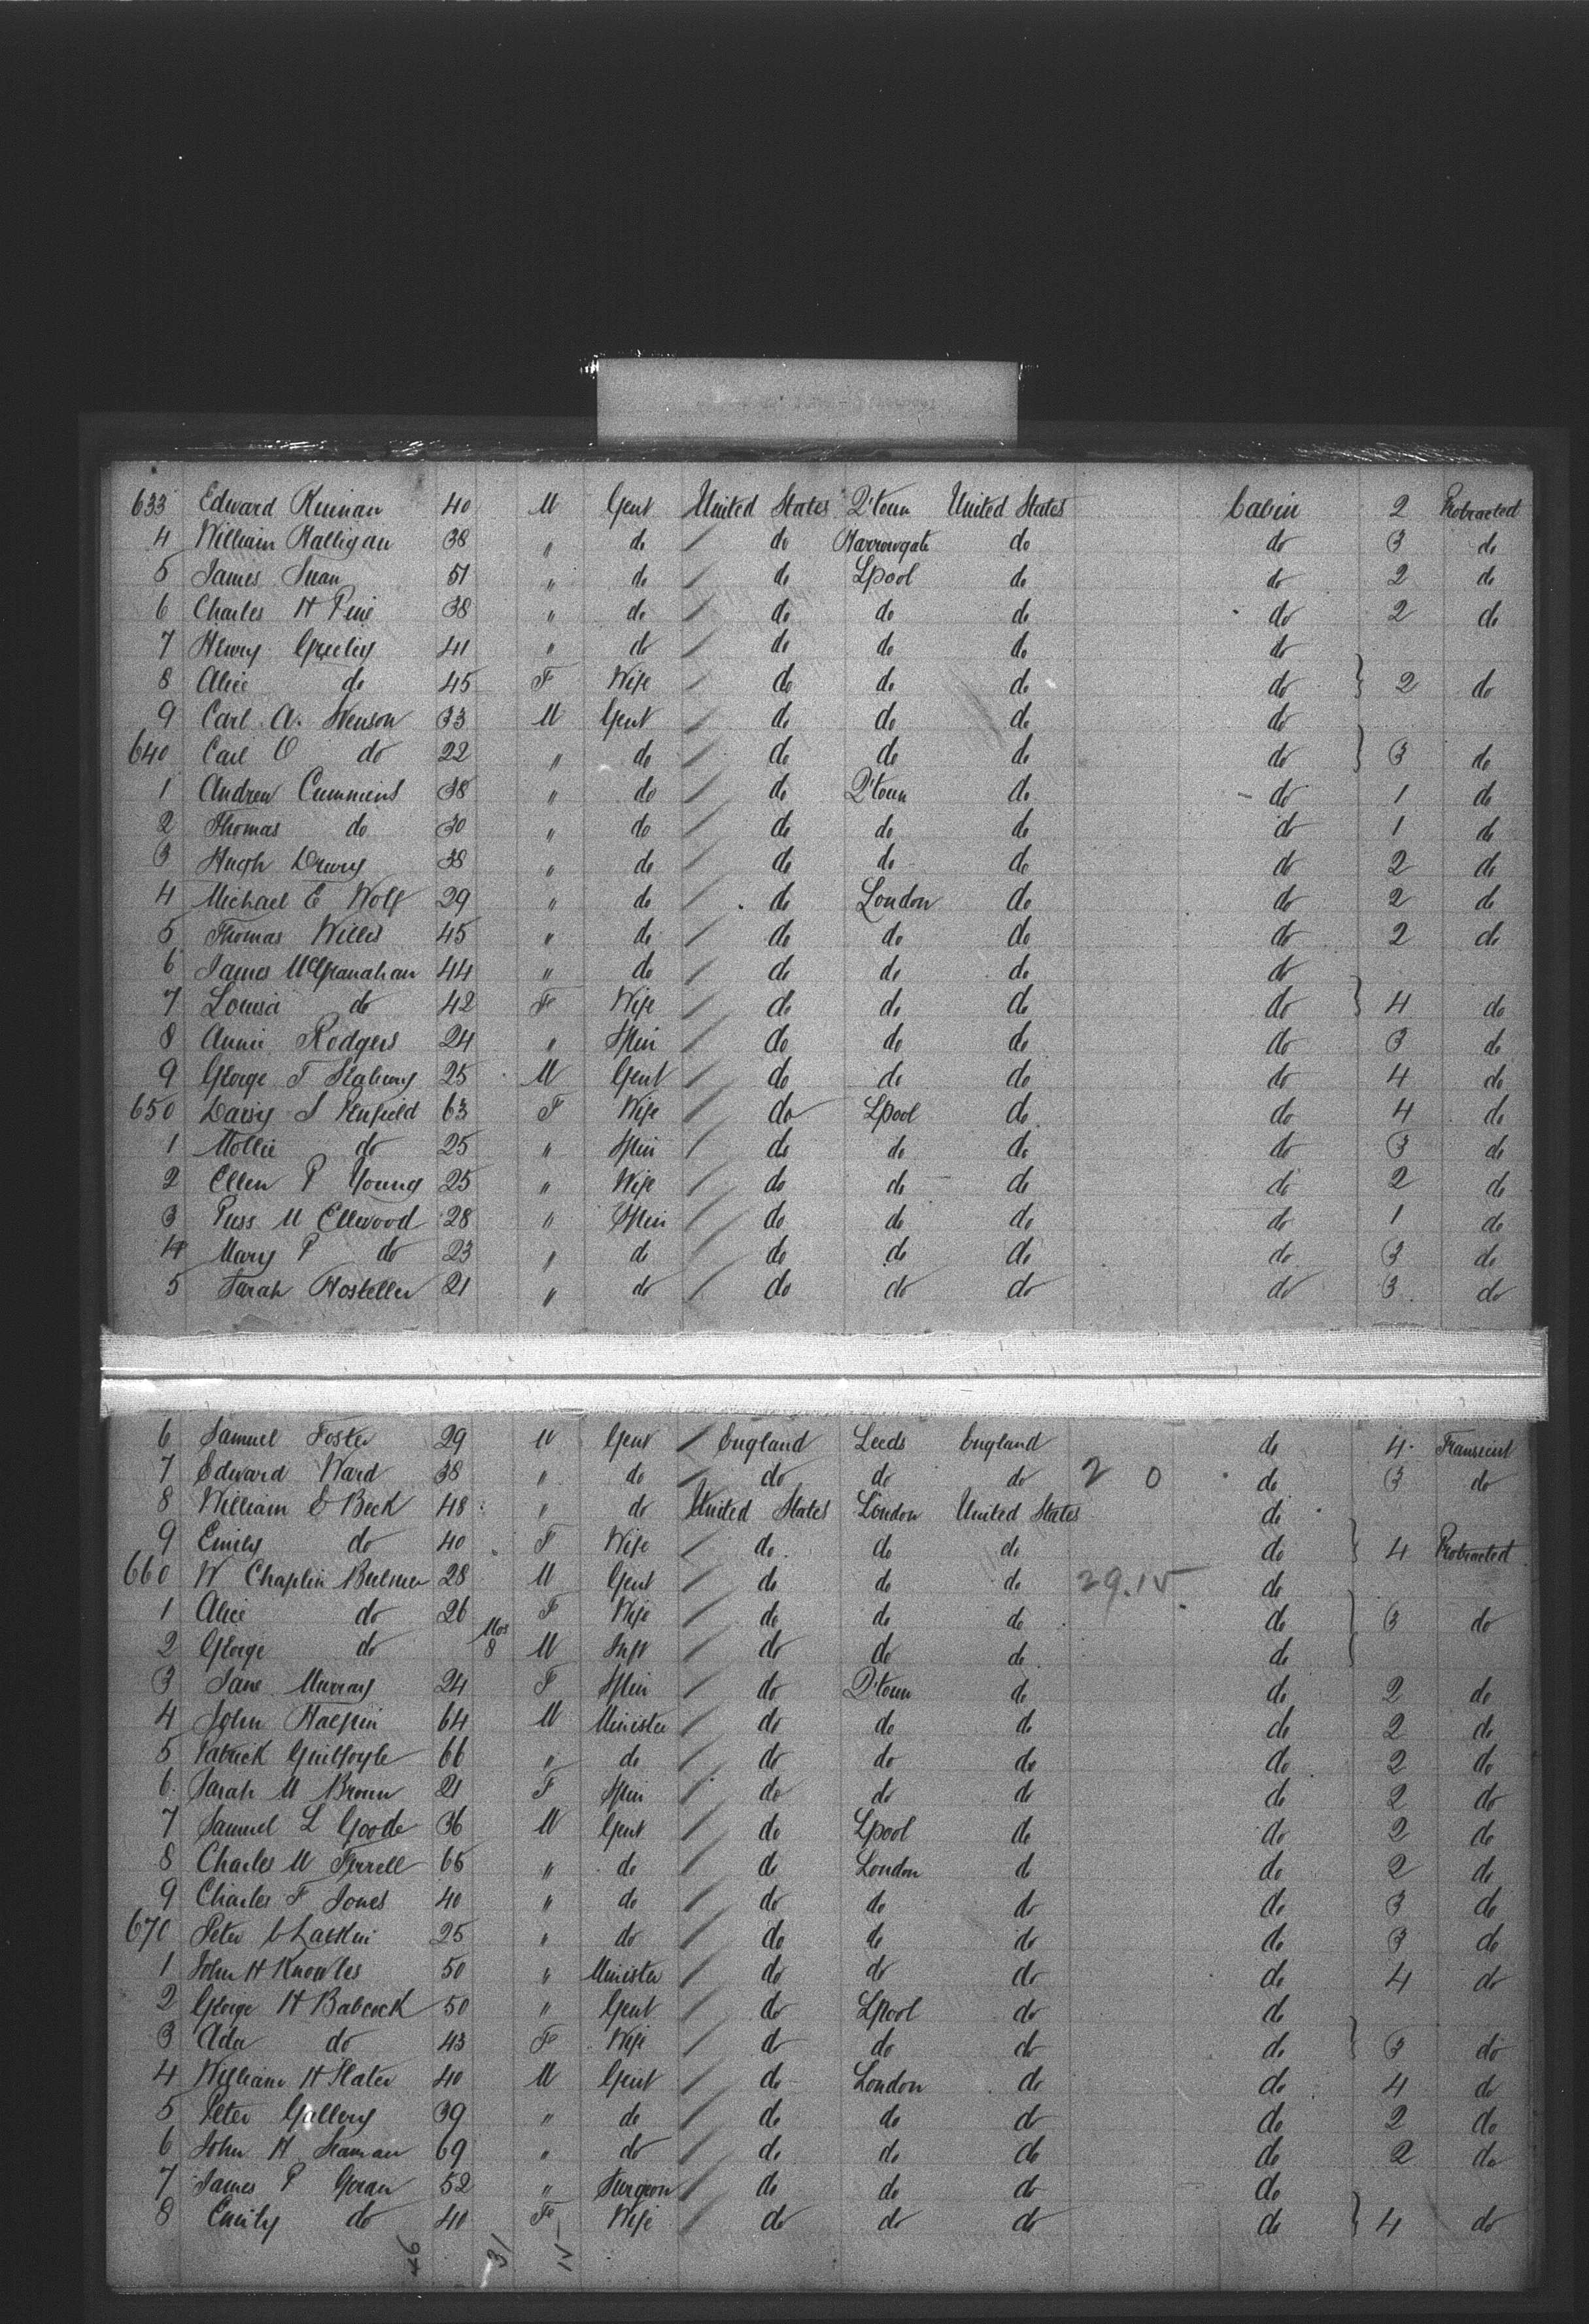 633 Edward Kiernan 40 M Gent United States Q'town United States Cabin 2 Protracted
4 William Halligan 38 " do / do Harrowgate do do 3 do
5 James Swan 51 " do / do Lpool do do 2 do
6 Charles H Pine 38 " do / do do do do 2 do
7 Henry Greeley 41 " do / do do do do
8 Alice do 45 F Wife / do do do do } 2 do
9 Carl A. Swenson 33 M Gent / do do do do
640 Carl O do 22 " do / do do do do } 3 do
1 Andrew Cummins 38 " do / do Q'town do do 1 do
2 Thomas do 30 " do / do do do do 1 do
3 Hugh Drury 38 " do / do do do do 2 do
4 Michael E Wolf 29 " do / do London do do 2 do
5 Thomas Willis 45 " do / do do do do 2 do
6 James McGranahan 44 " do / do do do do
7 Louisa do 42 Fe Wife / do do do do } 4 do
8 Annie Rodgers 24 " Spin / do do do do 3 do
9 George T 25 M Gent / do do do do 4 do
650 Daisy S Penfield 63 F Wife / do Lpool do do 4 do
1 Mollie do 25 " Spin / do do do do 3 do
2 Ellen P Young 25 " Wife / do do do do 2 do
3 Puss M Ellwood 28 " Spin / do do do do 1 do
4 Mary P do 23 " do / do do do do 3 do
5 Sarah Hostetler 21 " do / do do do do 3 do
6 Samuel Foster 29 M Gent / England Leeds England do 4 Transient
7 Edward Ward 38 " do / do do do 2 0 do 3 do
8 William E Beck 48 " do United States London United States do
9 Emily do 40 F Wife / do do do do } 4 Protracted
660 W Chaplin Bulmer 28 M Gent / do do do 29.15 do
1 Alice do 26 F Wife / do do do do } 3 do
2 George do Mos 8 M Inft / do do do do
3 Jane Murray 24 F Spin / do Q'town do do 2 do
4 John Halpin 64 M Minister / do do do do 2 do
5 Patrick Guilfoyle 66 " do / do do do do 2 do
6 Sarah M Brown 21 F Spin / do do do do 2 do
7 Samuel L Goode 36 M Gent / do Lpool do do 2 do
8 Charles M Ferrell 65 " do / do London do do 2 do
9 Charles F Jones 40 " do / do do do do 3 do
670 Peter C Larkin 25 " do / do do do do 3 do
1 John H Knowles 50 " Minister / do do do do 4 do
2 George H Babcock 50 " Gent / do Lpool do do
3 Ada do 43 Fe Wife / do do do do } 3 do
4 William H Slater 40 M Gent / do London do do 4 do
5 Peter Gallery 39 " do / do do do do 2 do
6 John H Seaman 69 " do / do do do do 2 do
7 James P Goran 52 " Surgeon / do do do do
8 Emily do 40 Fe Wife / do do do do } 4 do